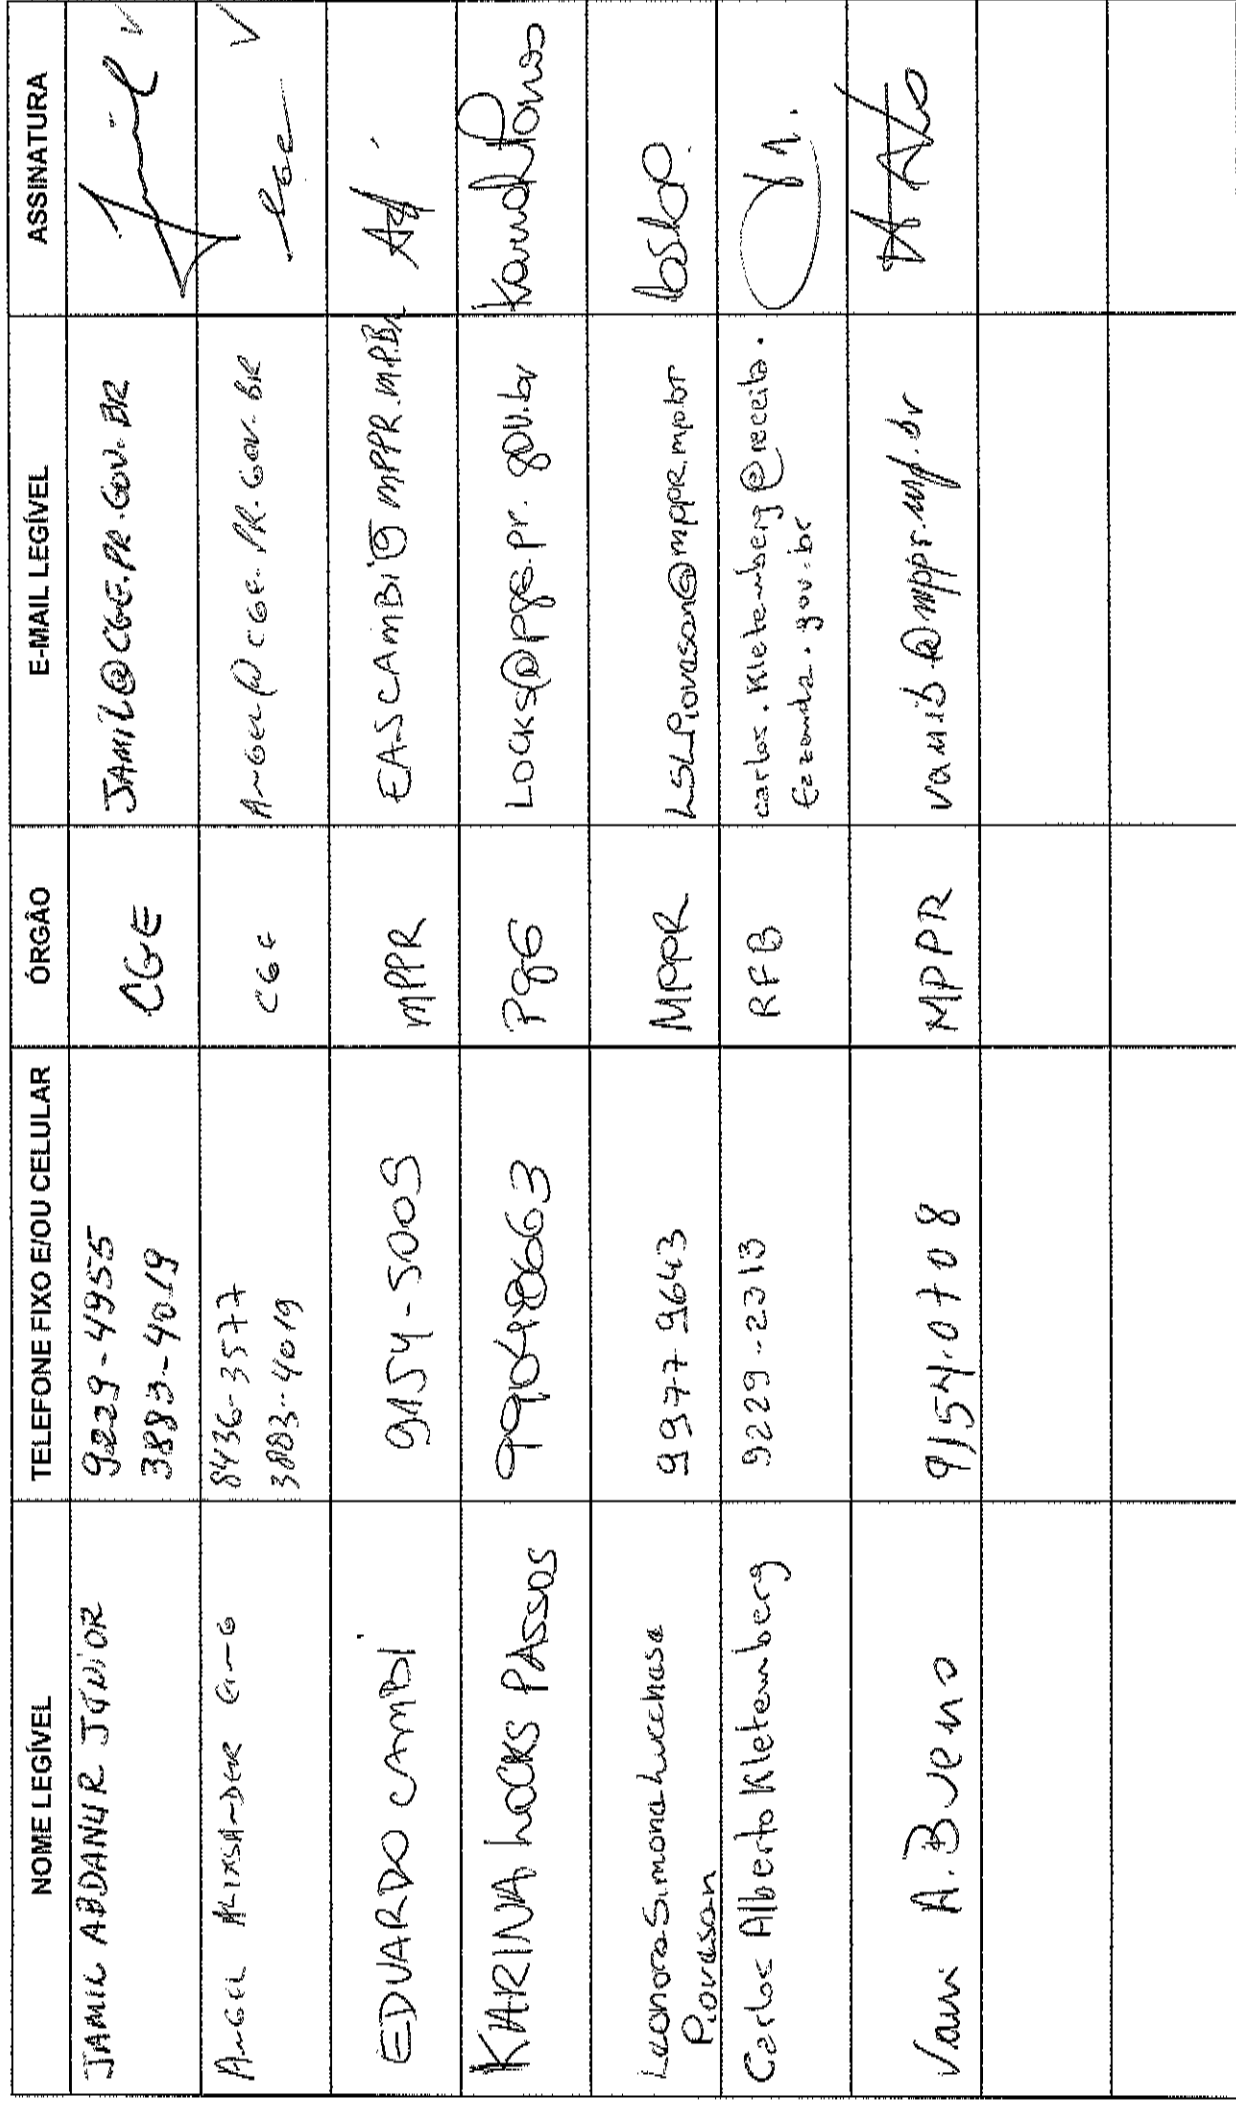 NOME LEGÍVEL TELEFONE FIXO E/OU CELULAR ÓRGÃO E-MAIL LEGÍVEL ASSINATURA
JAMIL ABDANUR JÚNIOR 9229-4955 CGE JAMIL@CGE.PR.GOV.BR
3883-4019
ANGEL 8436-3577 CGE ANGEL@CGE.PR.GOV.BR
3883-4019
EDUARDO CAMBI 9154-5005 MPPR EASCAMBI@MPPR.MP.BR
KARINA LOCKS PASSOS 999048663 PGE LOCKS@pge.pr.gov.br
Leonora Simona Lucchasa 9977-9643 MPPR LSLPiovesan@mppr.mp.br
Piovesan
Carlos Alberto Kletemberg 9229-2313 RFB carlos.Kletemberg@receita.
fazenda.gov.br
Vani A. Bueno 9154.0708 MPPR vanib@mppr.mp.br